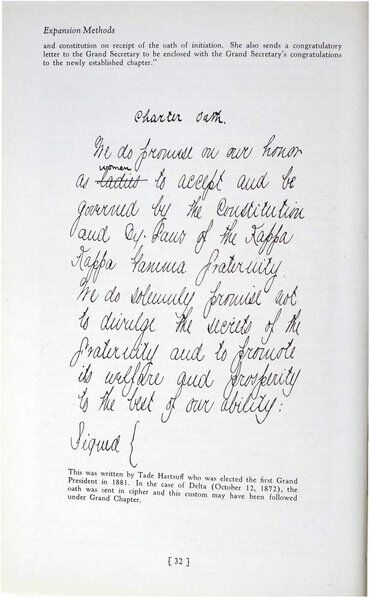 Expansion Methods
and constitution on receipt of the oath of initiation. She also sends a congratulatory
letter to the Grand Secretary to be enclosed with the Grand Secretary's congratulations
to the newly established chapter."
Charter Oath.
We do promise on our honor
women
as ladies to accept and be
governed by the Constitution
and By-Laws of the Kappa
Kappa Gamma fraternity.
We do solemnly promise not
to divulge the secrets of the
fraternity and to promote
its welfare and prosperity
to the best of our ability:
Signed {
This was written by Tade Hartsuff who was elected the first Grand
President in 1881. In the case of Delta (October 12, 1872), the
oath was sent in cipher and this custom may have been followed
under Grand Chapter.
[ 32 ]